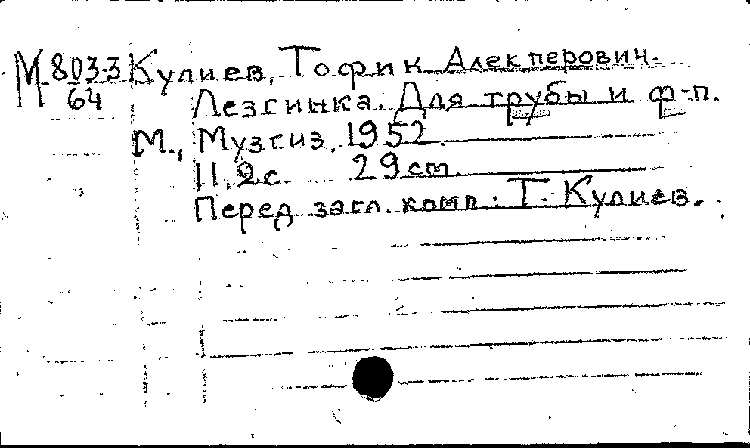 М 803-3 Кулиев, Тофик Алекперович.
64
Лезгинка. Для трубы и ф-п.
М., Музгиз, 1952.
11, 2с. 29 cm.
Перед загл. комп.: Т. Кулиев.